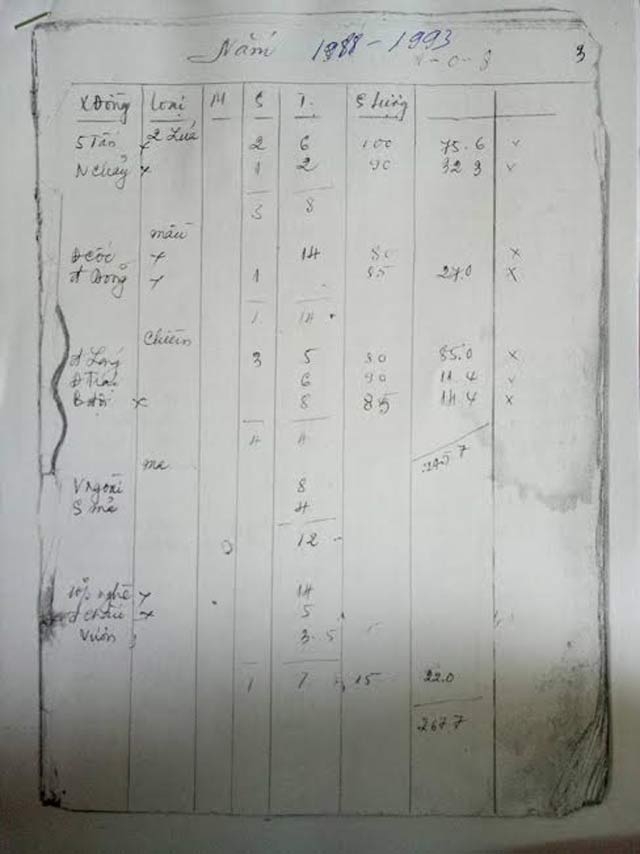 Năm 1988-1993
3
X Đồng Loại M S T. S Lượng
2 Lúa
5 Tấn x 2 6 100 75.6
N chảy x 1 2 90 32.3
3 8
màu
Đ Cốc x 14 80 x
Đ Đồng x 1 85 27.0 x
1 14
Chiêm
3 5 80 85.0 x
6 90 11.4
x 8 85 14.4 x
4 4
mạ
V Ngoài 8
S mạ 4
12
x 14
x 5
Vườn 3.5
1 7 15 22.0
267.7